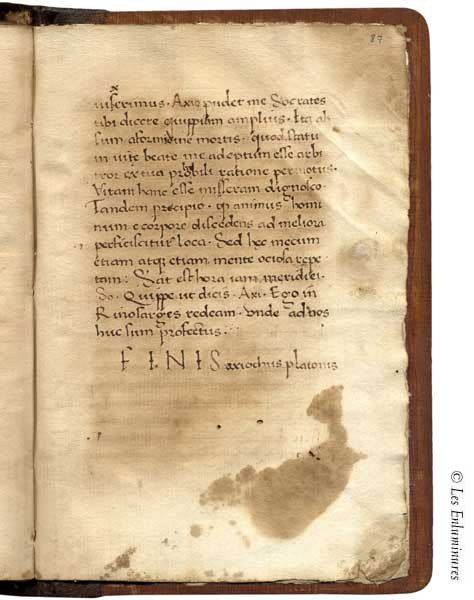 87
x
uiserimus. Axio pudet me Socrates
tibi dicere quippiam amplius. Ita ab
sum a formidine mortis. quod statu
in uite beate me adeptum esse arbi
tror ex tua probili ratione permotus.
Vitam hanc esse misseram dignosco.
Tandem precipio. animus homi
num e corpore discedens ad meliora
perficiscitur loca. Sed hec mecum
etiam atque etiam mente ociosa repe
tam: Sat est hora iam meridiei.
So. Quippe ut dicis. Axi. Ego in
Rinosarges redeam. unde ad uos
huc sum profectus:
FINIS axiochus platonis
© Les Enluminures